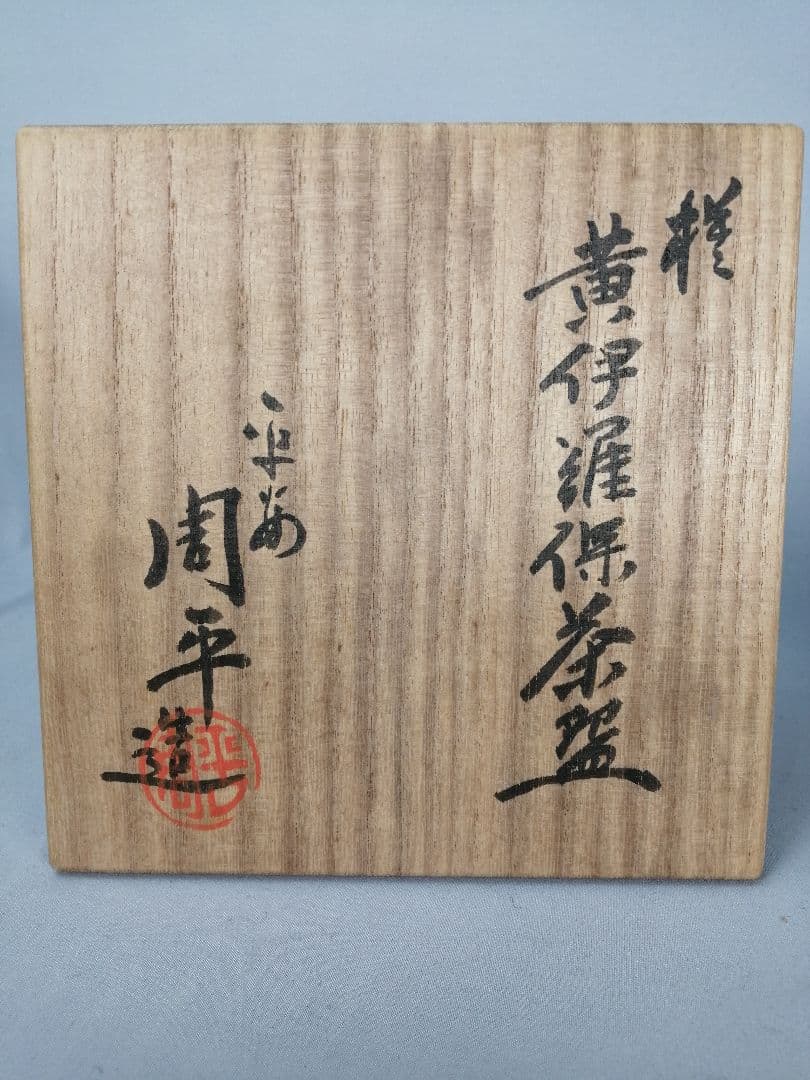 模
黄伊羅保茶盌
平安
周平造